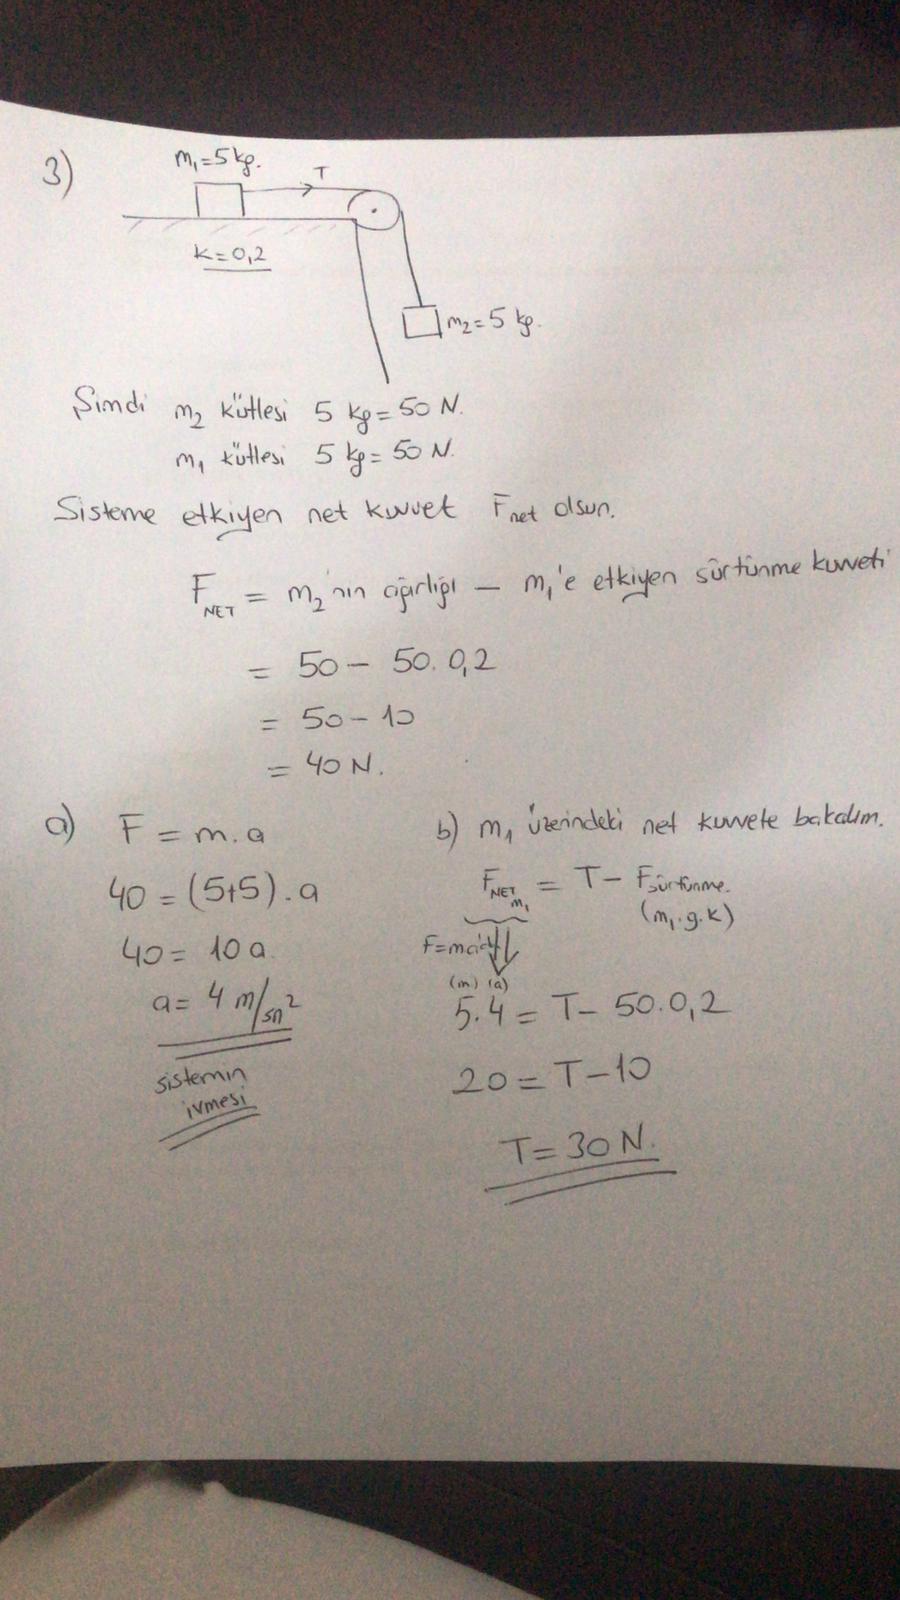 3)
m₁=5 kg.
T
k=0,2
m₂=5 kg.
Şimdi m₂ kütlesi 5 kg=50 N.
m₁ kütlesi 5 kg=50 N.
Sisteme etkiyen net kuvvet Fnet olsun.
FNET = m₂'nin ağırlığı – m₁'e etkiyen sürtünme kuvveti
= 50 – 50.0,2
= 50 – 10
= 40 N.
a) F = m.a
40 = (5+5).a
40 = 10a
a= 4 m/sn²
sistemin
ivmesi
b) m₁ üzerindeki net kuvvete bakalım.
FNET m₁ = T – Fsürtünme.
(m₁.g.k)
(m) (a)
5.4 = T – 50.0,2
20 = T – 10
T = 30 N.